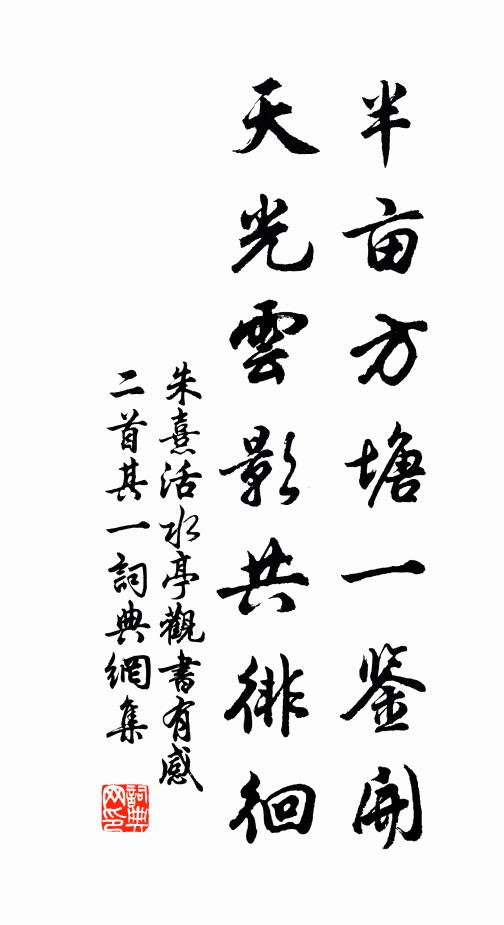 半亩方塘一鉴開
天光雲影共徘徊
朱熹活水亭觀書有感
二首其一詞典網集
詞典网印